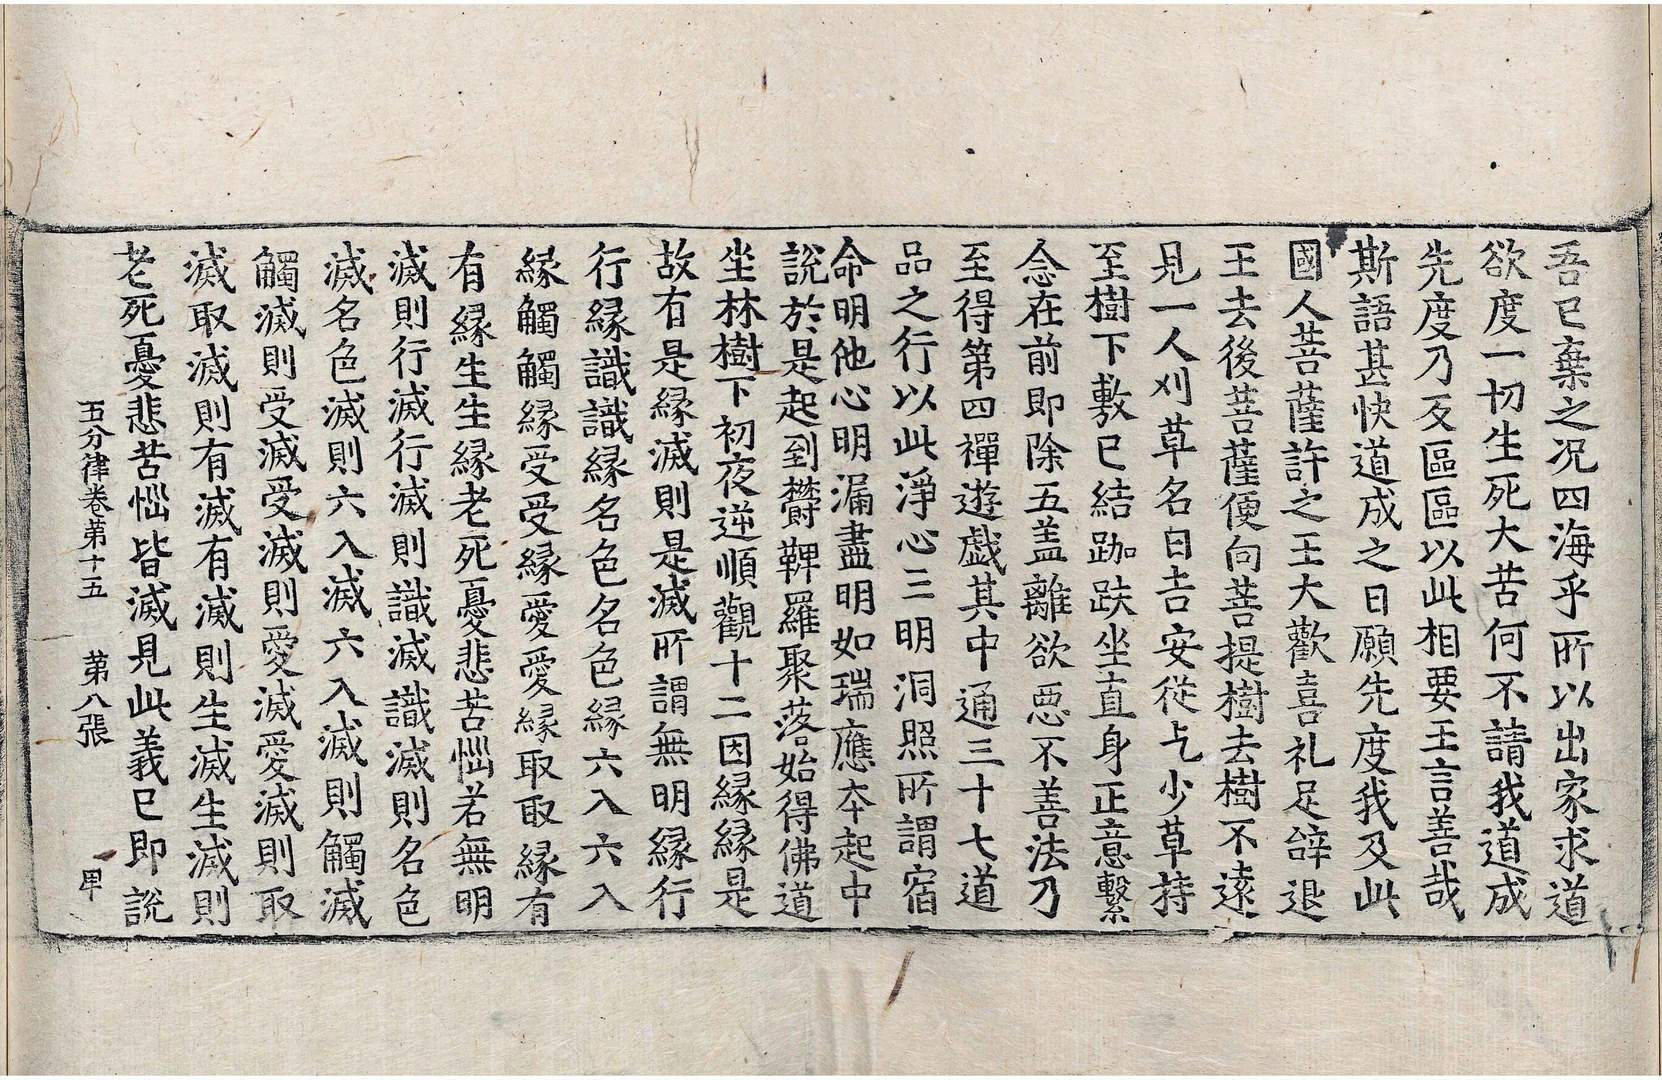 吾已棄之况四海乎所以出家求道
欲度一切生死大苦何不請我道成
先度乃反區區以此相要王言善哉
斯語甚快道成之日願先度我及此
國人菩薩許之王大歡喜礼足辝退
王去後菩薩便向菩提樹去樹不遠
見一人刈草名曰吉安從乞少草持
至樹下敷已結跏趺坐直身正意繫
念在前即除五盖離欲惡不善法乃
至得第四禪遊戲其中通三十七道
品之行以此淨心三明洞照所謂宿
命明他心明漏盡明如瑞應夲起中
說於是起到欝鞞羅聚落始得佛道
坐林樹下初夜逆順觀十二因緣緣是
故有是緣滅則是滅所謂無明緣行
行緣識識緣名色名色緣六入六入
緣觸觸緣受受緣愛愛緣取取緣有
有緣生生緣老死憂悲苦惱若無明
滅則行滅行滅則識滅識滅則名色
滅名色滅則六入滅六入滅則觸滅
觸滅則受滅受滅則愛滅愛滅則取
滅取滅則有滅有滅則生滅生滅則
老死憂悲苦惱皆滅見此義已即說
五分律卷第十五 第八張 甲